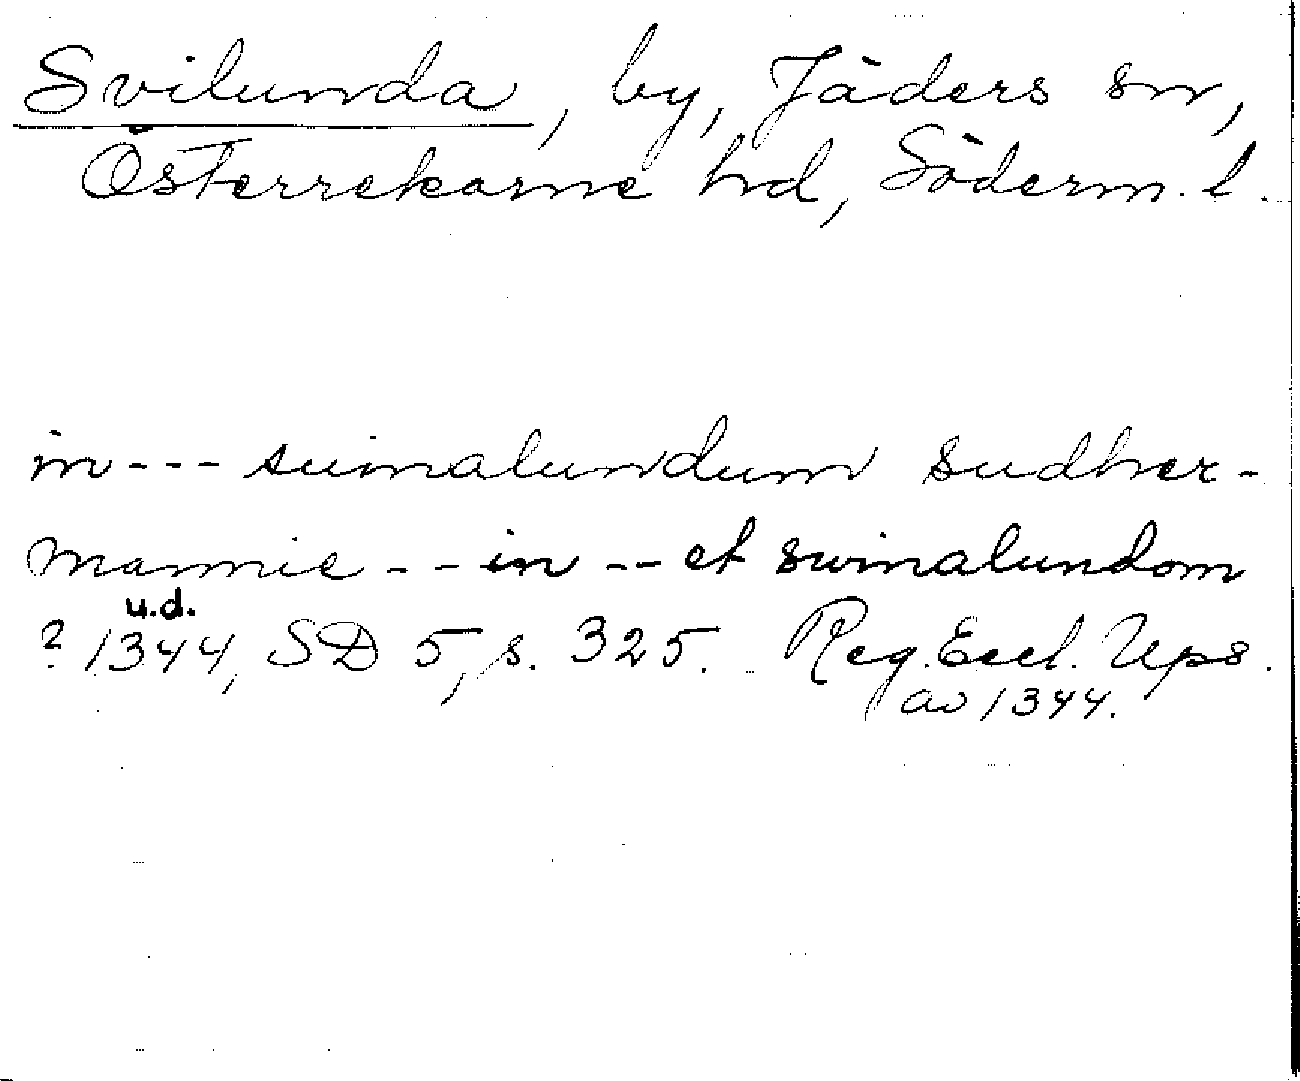 Svilunda, by, Jäders sn,
Österrekarne hd, Söderm. l.
in --- suinalundum sudher-
mannie -- in -- et swinalundom
u.d.
? 1344, SD 5, s. 325. Reg. Eccl. Ups.
av 1344.